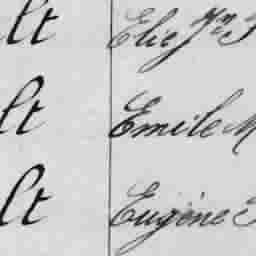 lt Elie Jn
lt Emile M
lt Eugène